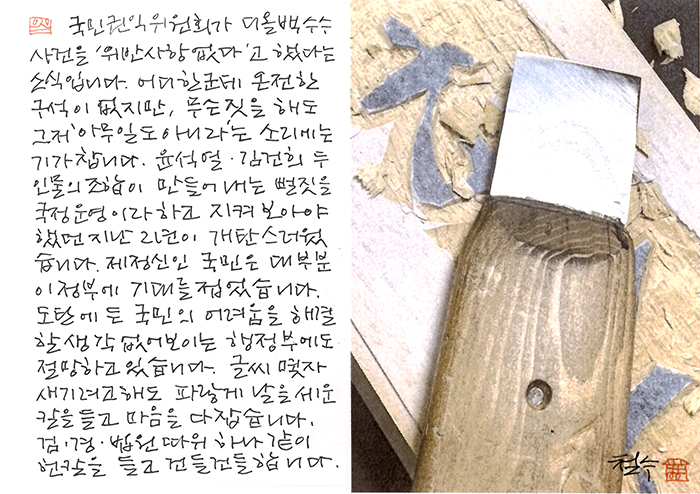 국민권익위원회가 디올백 수수
사건을 '위반사항 없다'고 했다는
소식입니다. 어디 한군데 온전한
구석이 없지만, 무슨 짓을 해도
그저 '아무일도 아니라'는 소리에는
기가 찹니다. 윤석열·김건희 두
인물의 조합이 만들어 내는 뻘짓을
국정운영이라 하고 지켜 보아야
했던 지난 2년이 개탄스러웠
습니다. 제정신인 국민은 대부분
이 정부에 기대를 접었습니다.
도탄에 든 국민의 어려움을 해결
할 생각 없어 보이는 행정부에도
절망하고 있습니다. 글씨 몇자
새기려고 해도 파랗게 날을 세운
칼을 들고 마음을 다잡습니다.
검·경·법원 따위 하나 같이
헌칼을 들고 건들건들합니다.
철수